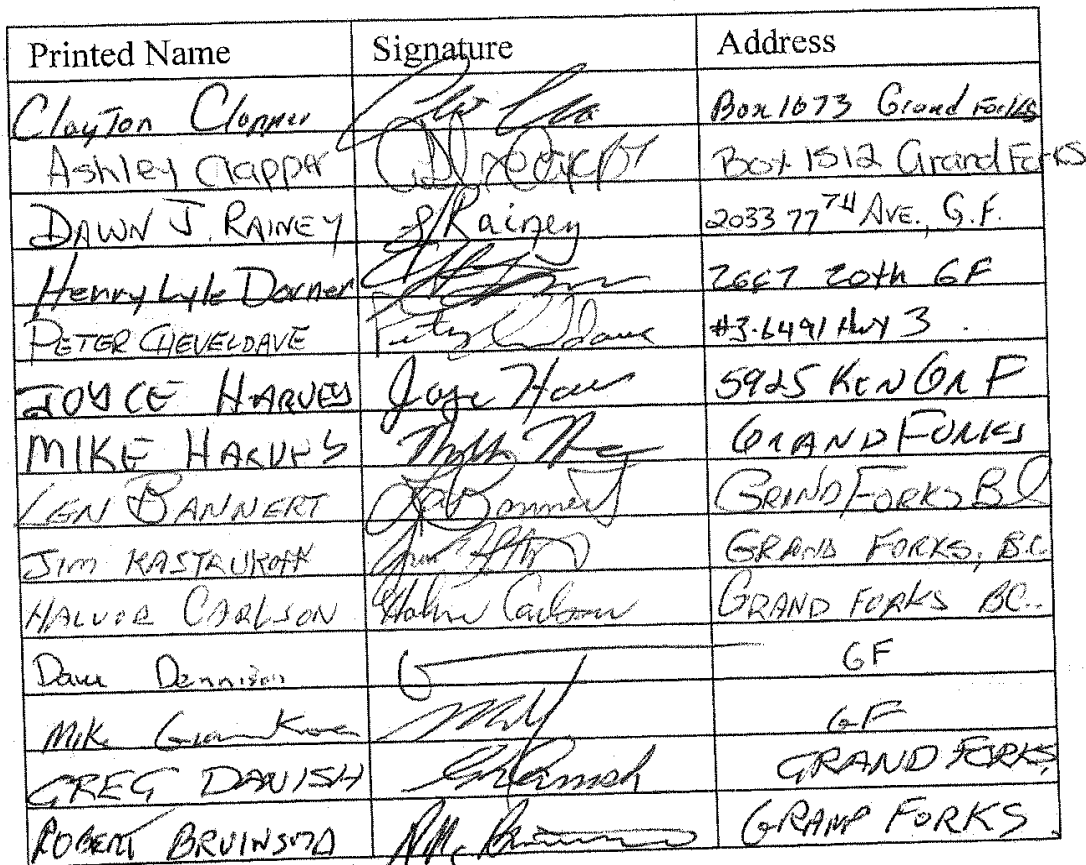 Printed Name Signature Address
Clayton Clapper Box 1673 Grand Forks
Ashley Clapper Box 1512 Grand Forks
DAWN J. RAINEY Rainey 2033 77TH AVE., G.F.
Henry Lyle Dorner 2667 20th GF
PETER CHEVELDAVE #3-6491 Hwy 3
JOYCE HARVEY 5925 KEN GR F
MIKE HARVEY GRAND FORKS
LEN BANNERT Bannert GRAND FORKS BC
JIM KASTRUKOFF GRAND FORKS, B.C
HALVOR CARLSON Halvor Carlson GRAND FORKS BC.
Dave Dennison GF
Mike GF
GREG DANISH GRAND FORKS
ROBERT BRUINSMA GRAND FORKS